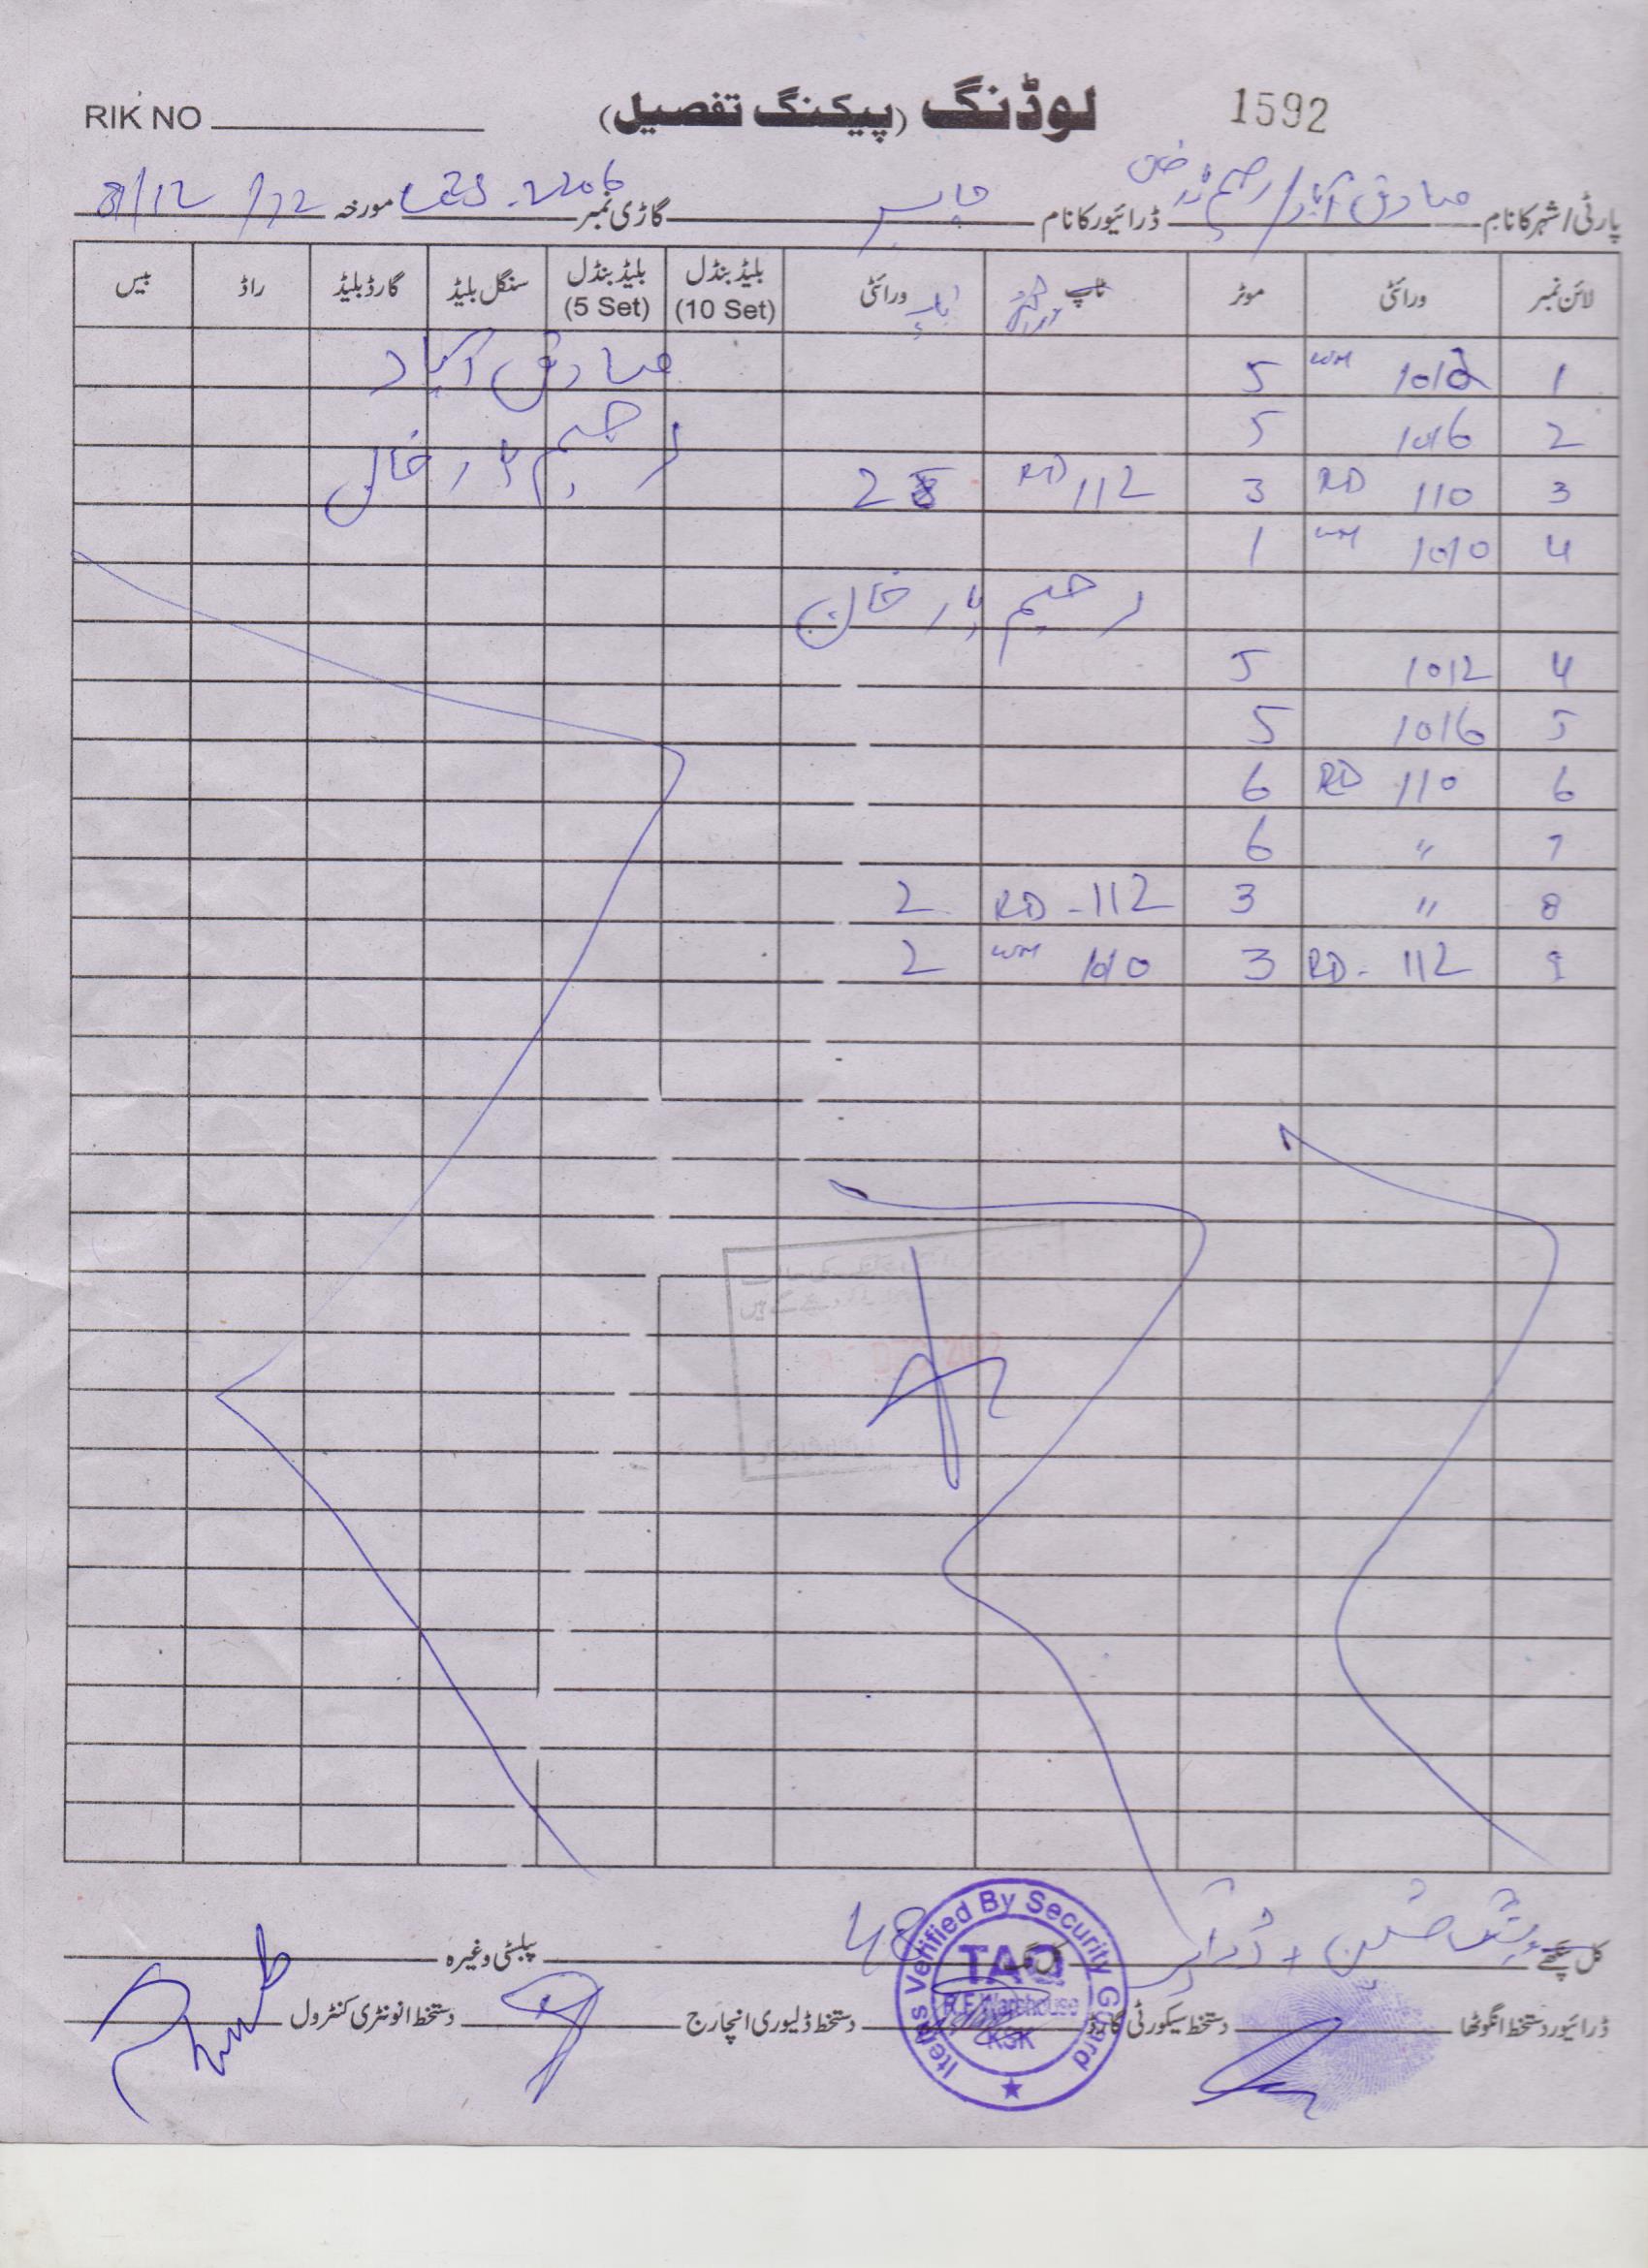 RIK NO لوڈنگ (پیکنگ تفصیل) 1592
پارٹی/شہر کا نام صادق آباد/رحیم یار خان ڈرائیور کا نام گاڑی نمبر LES-2206 مورخہ 8/12/22
لائن نمبر ورائٹی موٹر ٹاپ ورائٹی بلیڈ بنڈل (10 Set) بلیڈ بنڈل (5 Set) سنگل بلیڈ گارڈ بلیڈ راڈ بیس
1 WM 1012 5 صادق آباد
2 1016 5 رحیم یار خان
3 RD 110 3 RD 112 2
4 WM 1010 1
رحیم یار خان
4 1012 5
5 1016 5
6 RD 110 6
7 " 6
8 " 3 RD-112 2
9 RD-112 3 WM 1010 2
کل پنکھے 48 پبلسٹی وغیرہ
ڈرائیور دستخط انگوٹھا دستخط سیکورٹی گارڈ دستخط ڈلیوری انچارج دستخط انونٹری کنٹرول
Items Verified By Security Guard
TAQ
R.F Warehouse
KSK